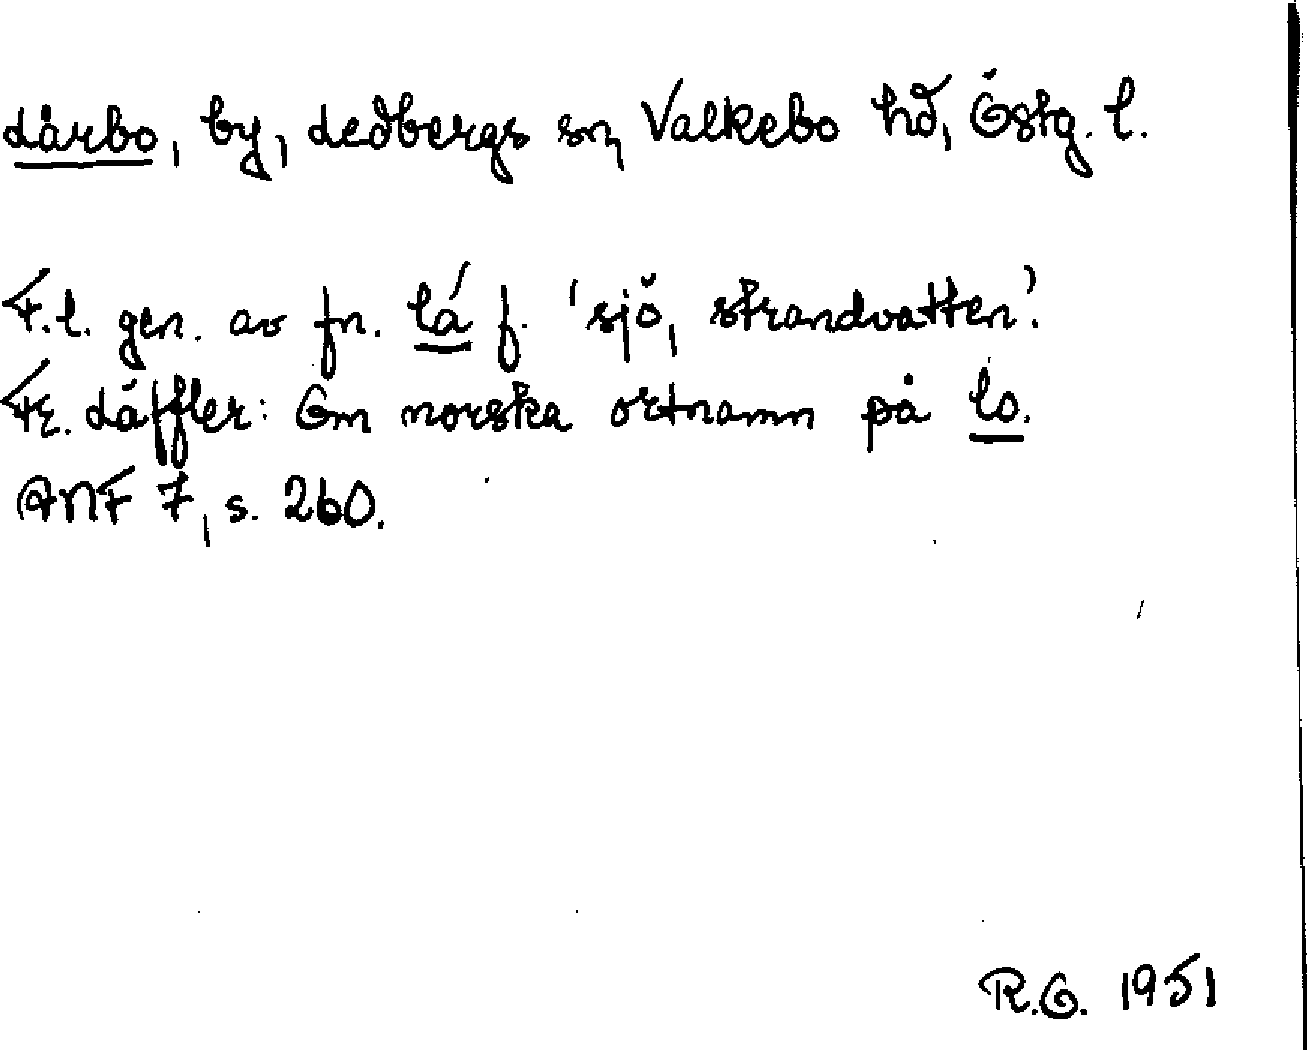 Lårbo, by, Ledbergs sn, Valkebo hd, Östg. l.
F.l. gen. av fn. lá f. 'sjö, strandvatten'.
Fr. Läffler: Om norska ortnamn på ló.
ANF 7, s. 260.
R.G. 1951